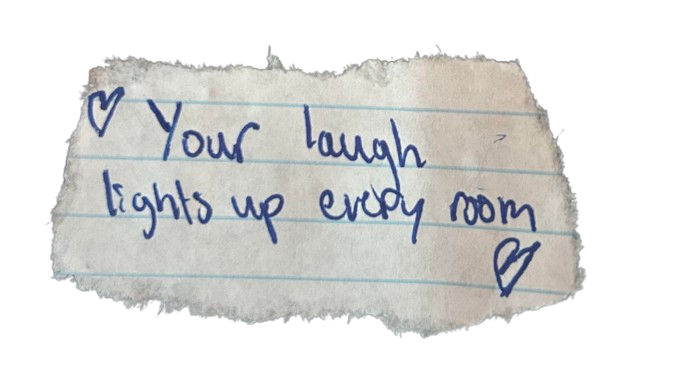 ♡ Your laugh
lights up every room
♡